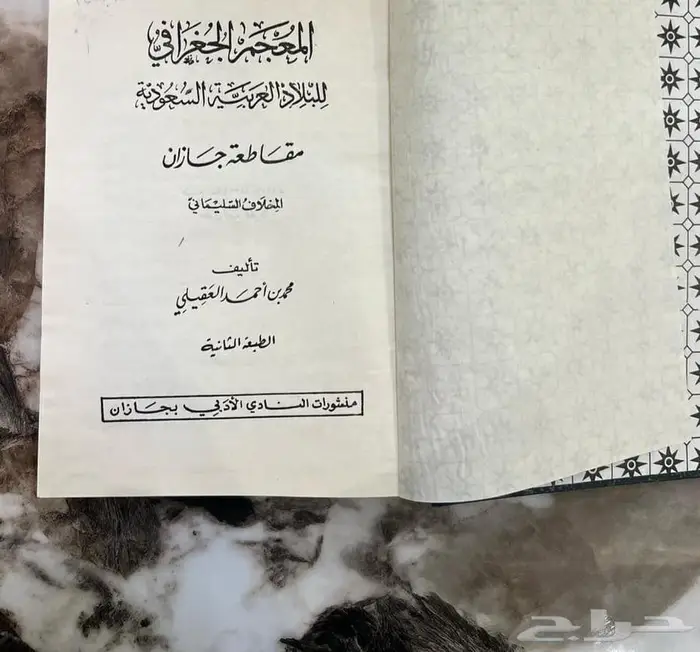 المعجم الجغرافي
للبلاد العربية السعودية
مقاطعة جازان
المخلاف السليماني
تأليف
محمد بن أحمد العقيلي
الطبعة الثانية
منشورات النادي الأدبي بجازان
حراج